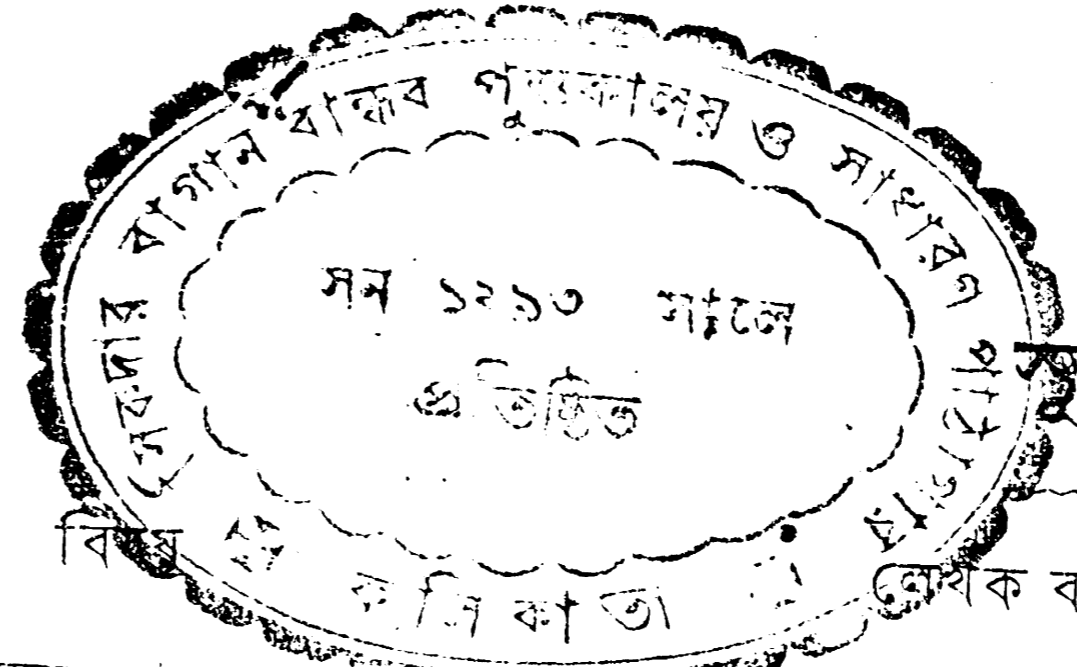 সেকদার বাগান বান্ধব পুস্তকালয় ও সাধারণ পাঠাগার
সন ১২৯৩ শালে
প্রতিষ্ঠিত
কলিকাতা
বিষয়
লেখক